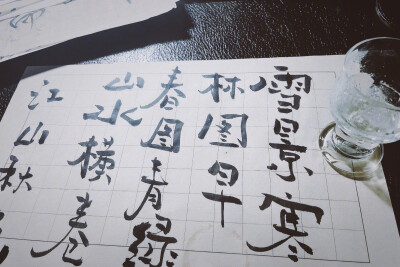 雪景寒
林图早
春图青绿
山水横卷
江山秋